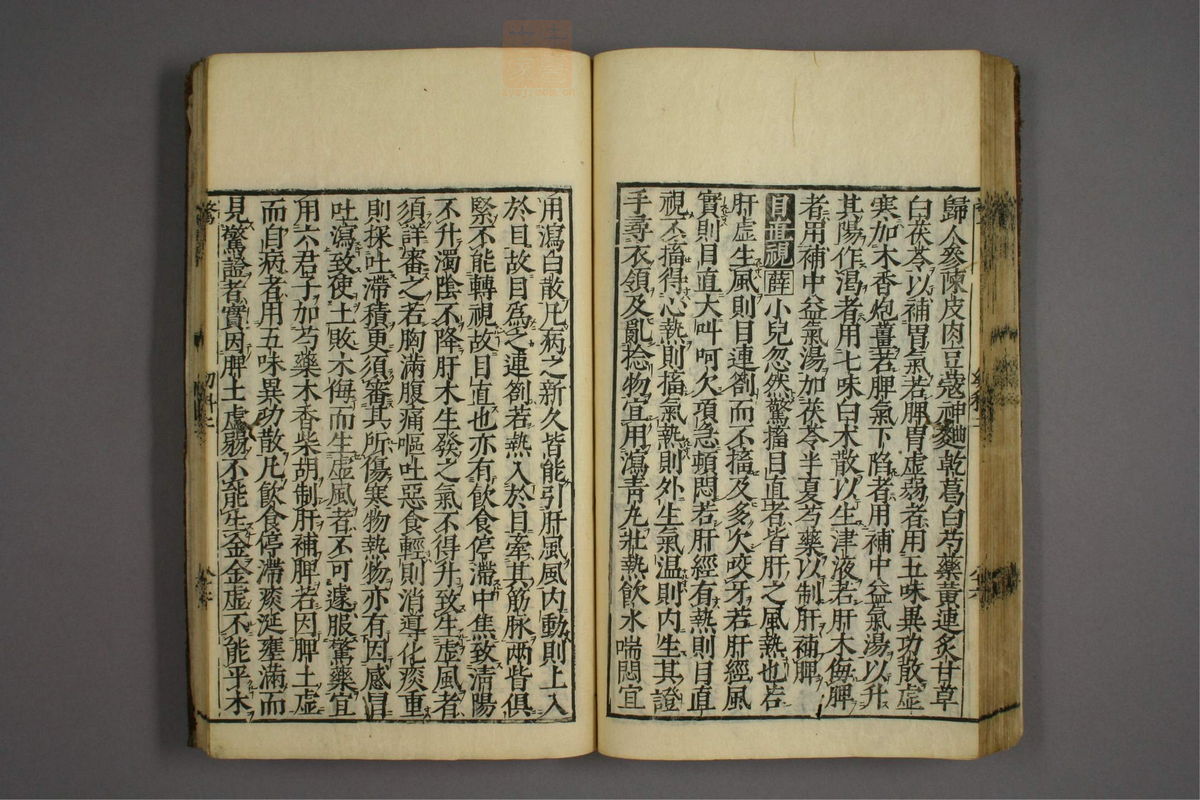 歸人參陳皮肉豆蔻神麯乾葛白芍藥黃連炙甘草
白茯苓以補胃氣若脾胃虛弱者用五味異功散虛
寒加木香炮薑若脾氣下陷者用補中益氣湯以升
其陽作渴者用七味白朮散以生津液若肝木侮脾
者用補中益氣湯加茯苓半夏芍藥以制肝補脾
目直視 薛 小兒忽然驚搐目直者皆肝之風熱也若
肝虛生風則目連劄而不搐及多欠咬牙若肝經風
實則目直大叫呵欠項急頓悶若肝經有熱則目直
視不搐得心熱則搐氣熱則外生氣温則内生其證
手尋衣領及亂捻物宜用瀉青丸壯熱飲水喘悶宜
用瀉白散凡病之新久皆能引肝風風内動則上入
於目故目爲之連劄若熱入於目牽其筋脉兩眥俱
緊不能轉視故目直也亦有飲食停滯中焦致清陽
不升濁陰不降肝木生發之氣不得升致生虛風者
須詳審之若胸滿腹痛嘔吐惡食輕則消導化痰重
則探吐滯積更須審其所傷寒物熱物亦有因感冒
吐瀉致使土敗木侮而生虛風者不可遽服驚藥宜
用六君子加芍藥木香柴胡制肝補脾若因脾土虛
而自病者用五味異功散凡飲食停滯痰涎壅滿而
見驚證者實因脾土虛弱不能生金金虛不能平木